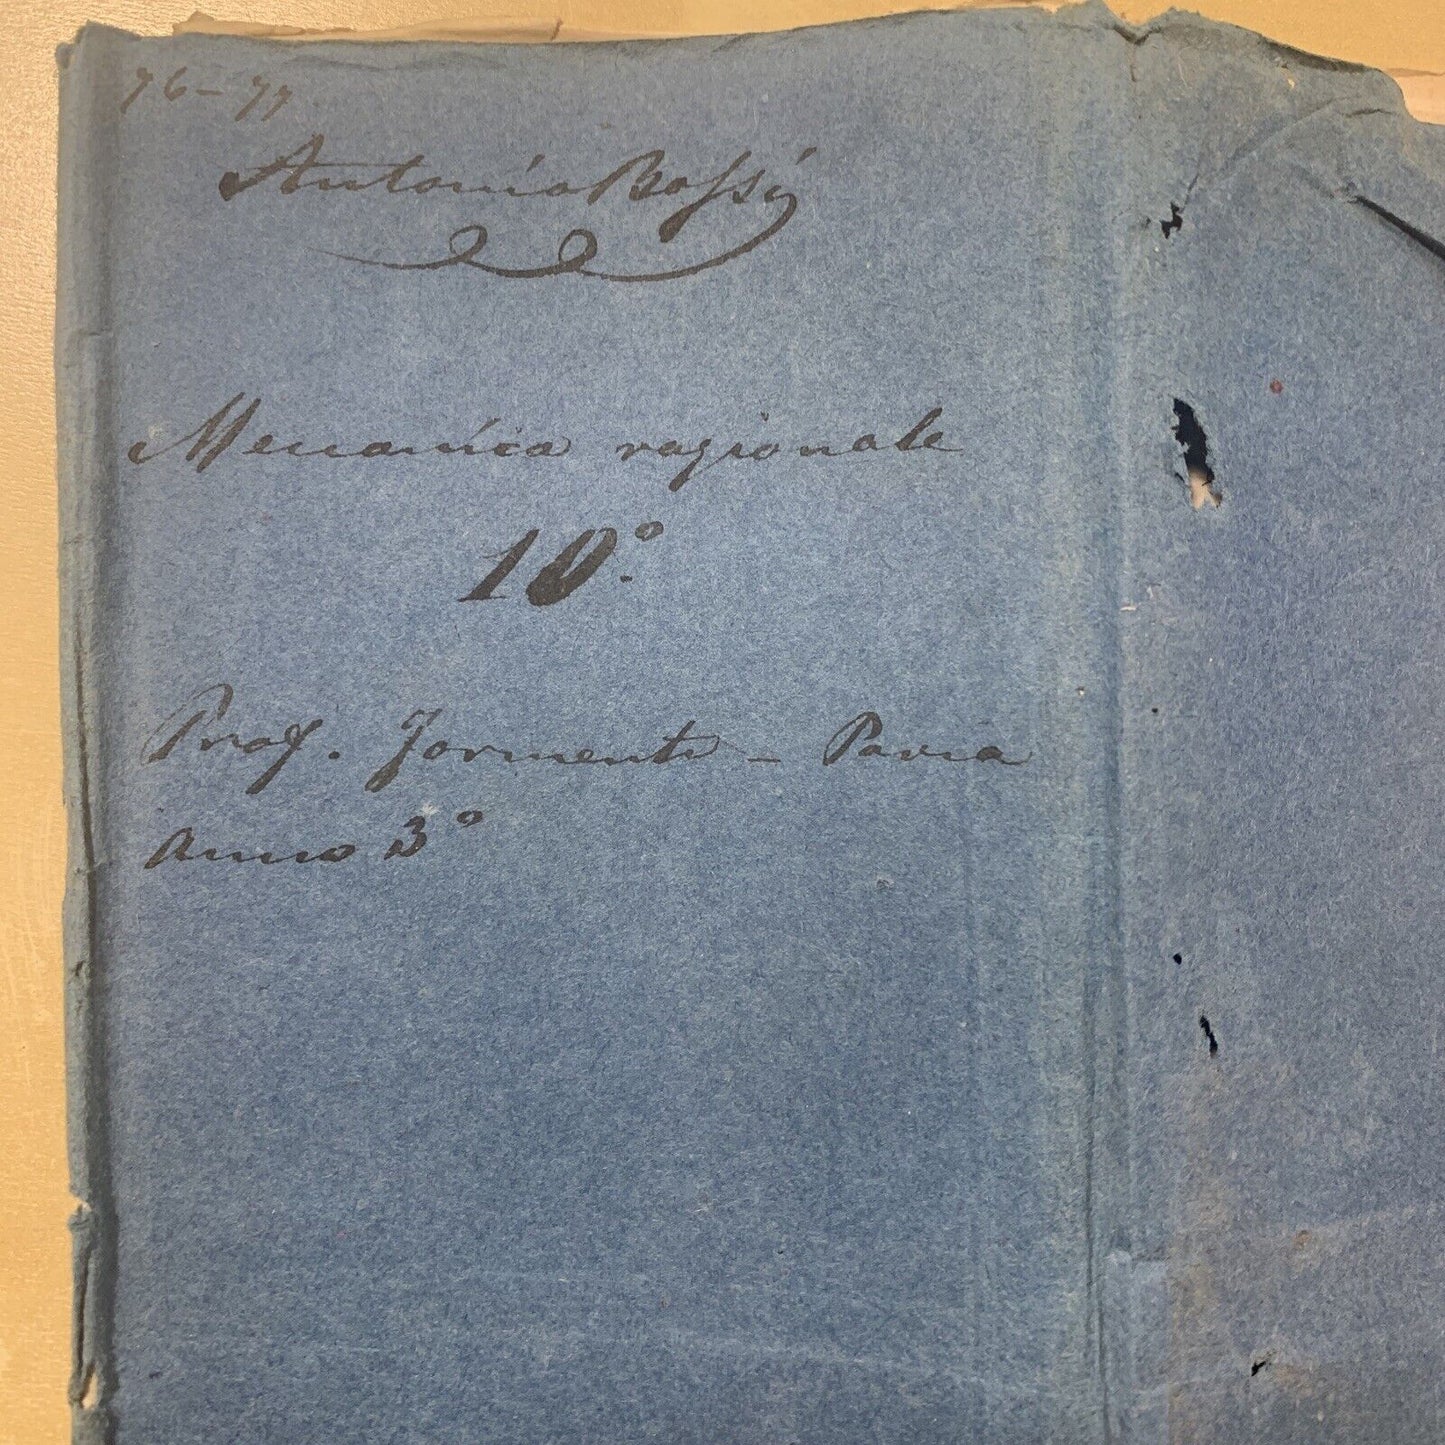 76-77
Antonio Bossi
Meccanica razionale
10°.
Prof. Formenti - Pavia
Anno 3°